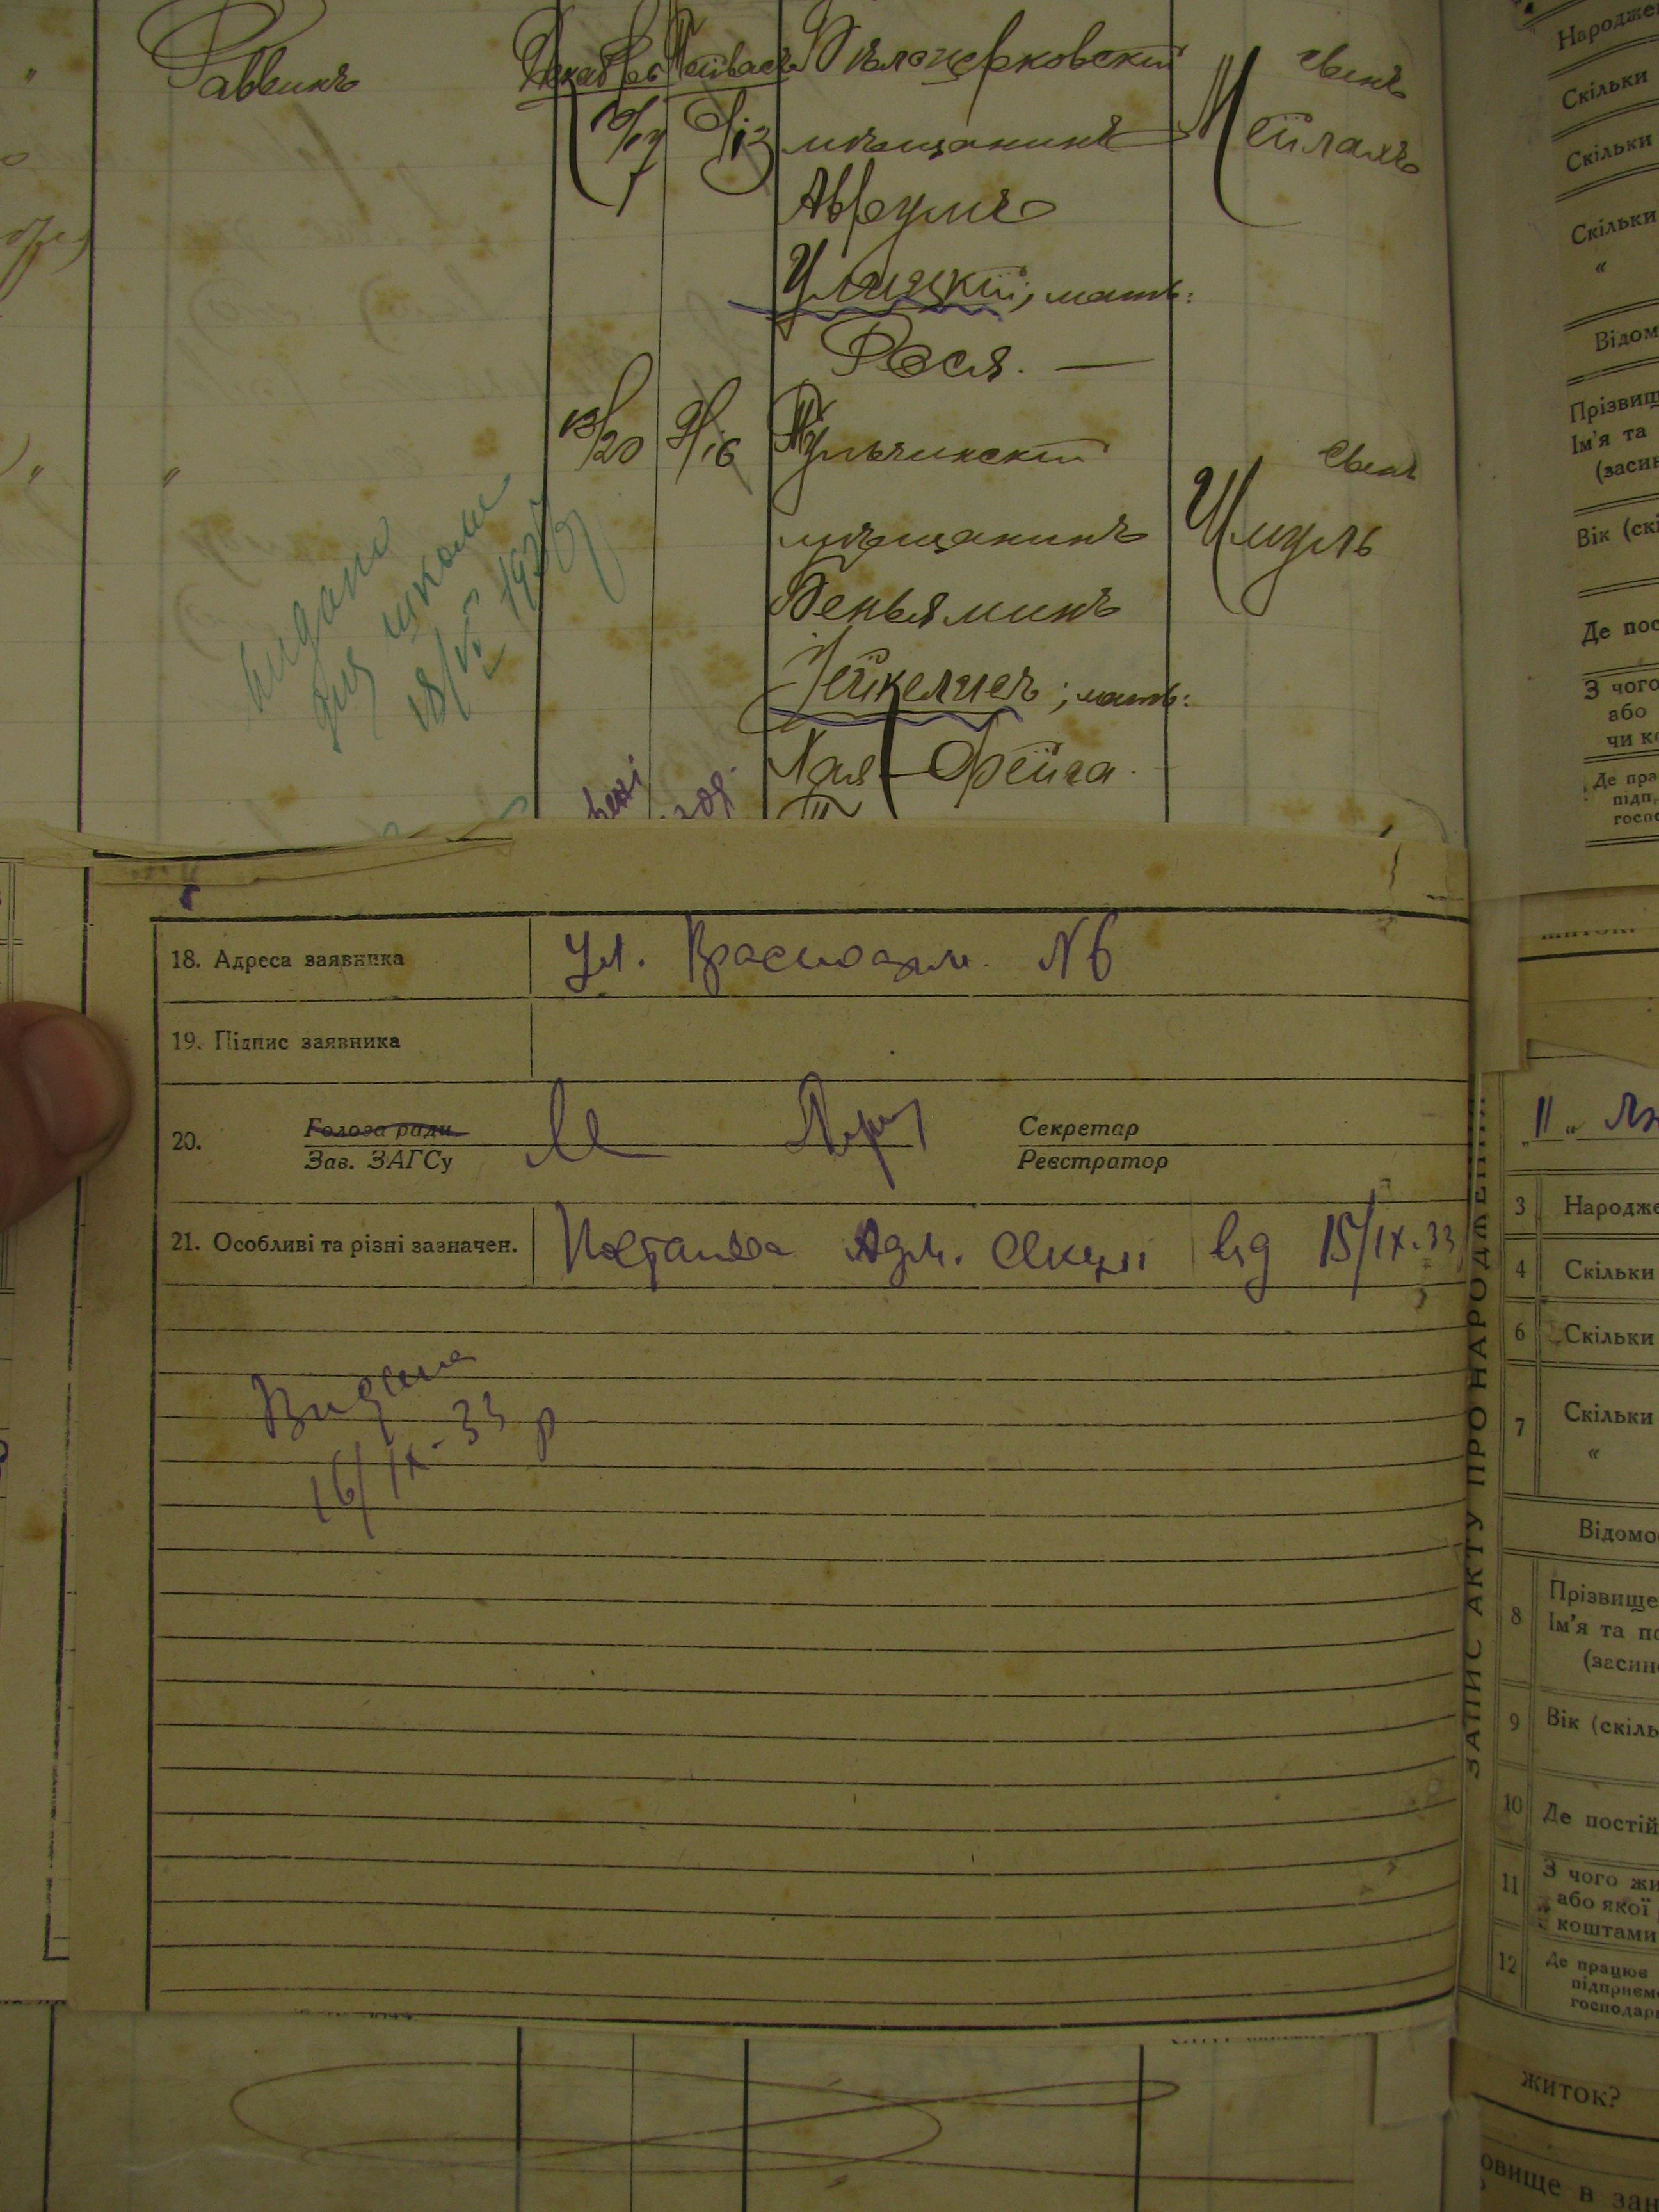 Раввинъ
Декабрь
Бѣлоцерковскій
сынъ
мѣщанинъ
Мейлахъ
Авრумъ
Улицкій; мать:
Рося. —
13/20 9/16 Тульчинскій
сынъ
"
мѣщанинъ
Шмуль
Беньяминъ
видано
для школи
Хейкелисъ; мать:
Хая-Фрейга
18. Адреса заявника
Ул. Красноарм. N 6
19. Підпис заявника
20.
Голова ради
Зав. ЗАГСу
Секретар
Реєстратор
21. Особливі та різні зазначен.
Постанова Адм. Секції від 15/IX-33
Видана
16/IX-33 р
ЗАПИС АКТУ ПРО НАРОДЖЕННЯ
Народже
Скільки
Скільки
Скільки
"
Відом
Прізвищ
Ім'я та
(засин
Вік (скі
Де пос
З чого
або
чи к
Де пра
підп
госпо
"11"
3 Народже
4 Скільки
6 Скільки
7 Скільки
"
Відомо
8 Прізвище
Ім'я та по
(засин
9 Вік (скіль
10 Де постій
11 З чого жи
або якої
коштами
12 Де працює
підприєм
господар
житок?
овище в зан